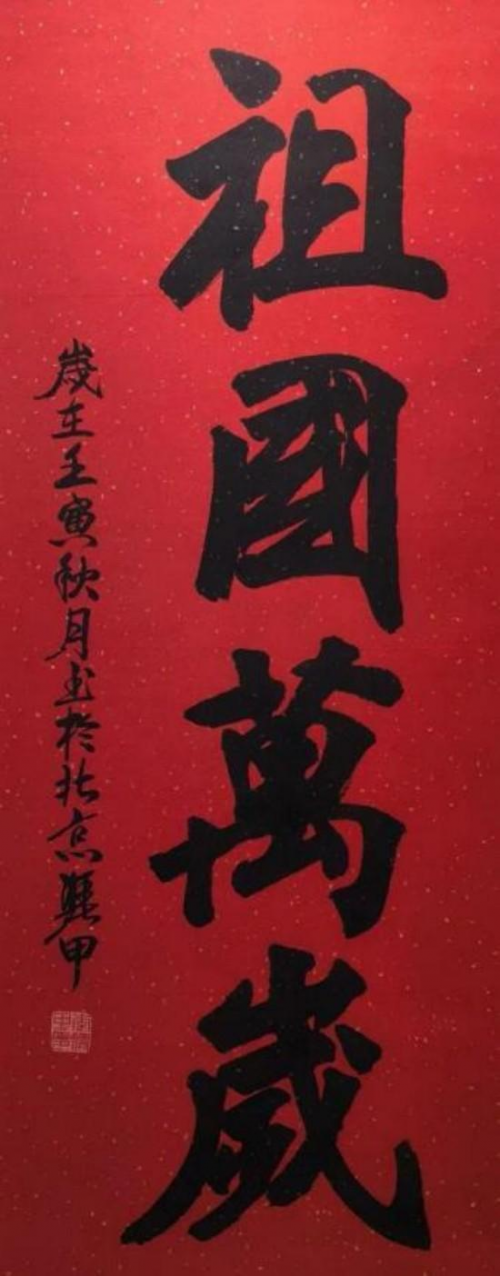 祖國萬歲
歲在壬寅秋月书於北京興甲